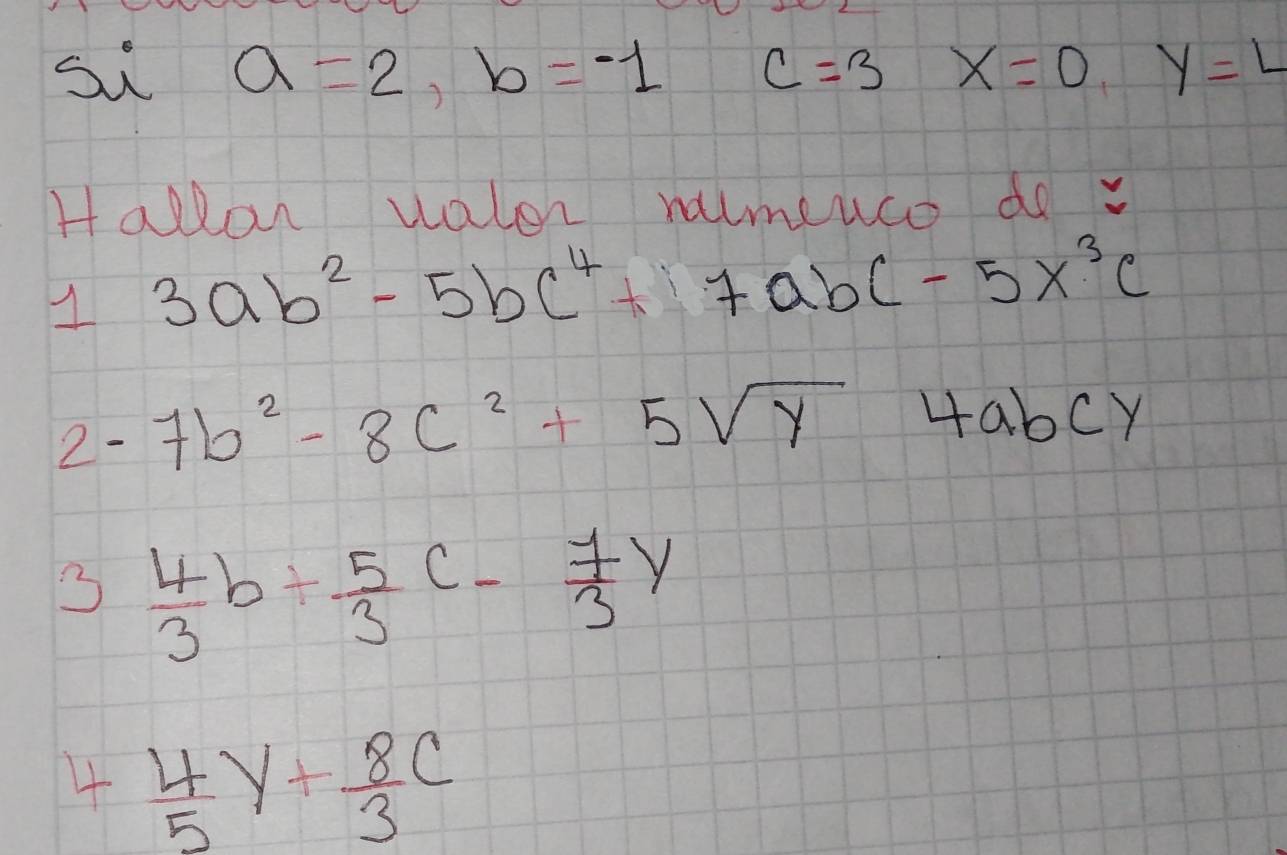 Si a = 2, b = -1 c = 3 x = 0, y = 4
Hallar valor numerico de :
1 3ab² - 5bc⁴ + 7abc - 5x³c
2 - 7b² - 8c² + 5√y 4abcy
3 4/3 b + 5/3 c - 7/3 y
4 4/5 y + 8/3 c